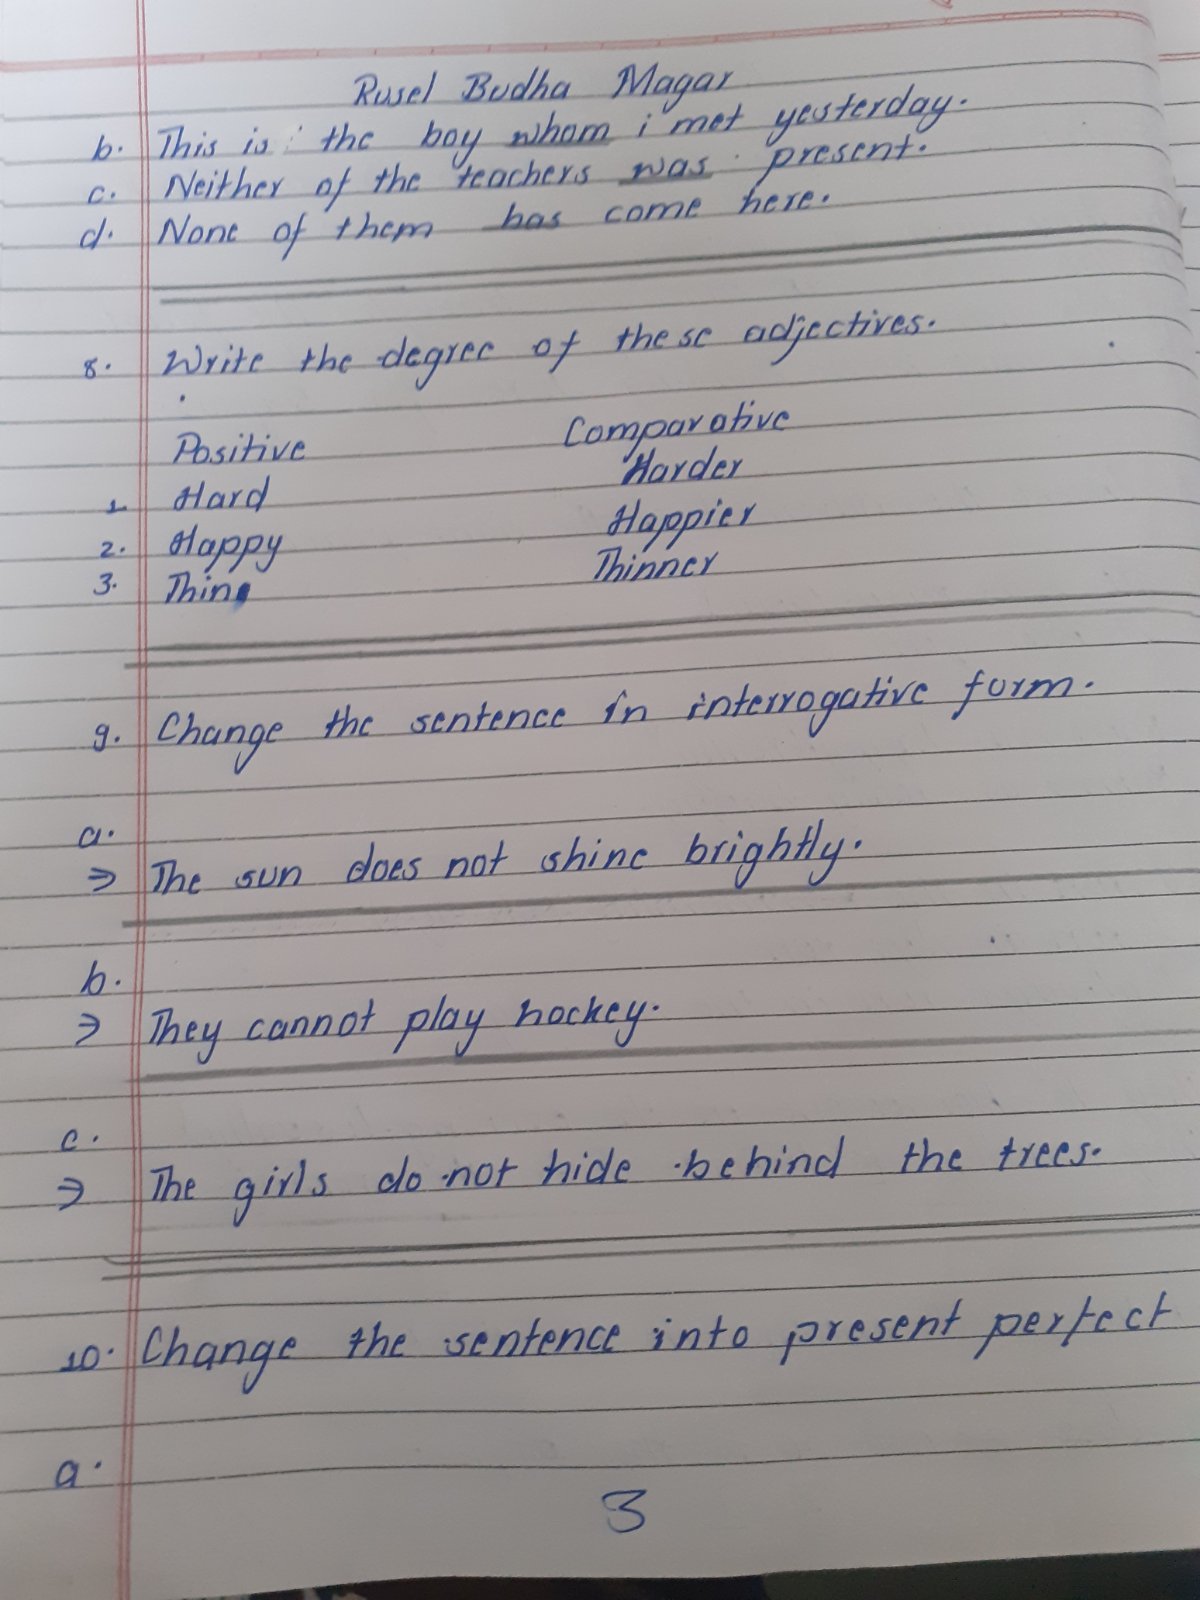 Rusel Budha Magar
b. This is the boy whom i met yesterday.
c. Neither of the teachers was present.
d. None of them has come here.
8. Write the degree of these adjectives.
Positive Comparative
1. Hard Harder
2. Happy Happier
3. Thin Thinner
9. Change the sentence in interrogative form.
a.
⇒ The sun does not shine brightly.
b.
⇒ They cannot play hockey.
c.
⇒ The girls do not hide behind the trees.
10. Change the sentence into present perfect
a.
3